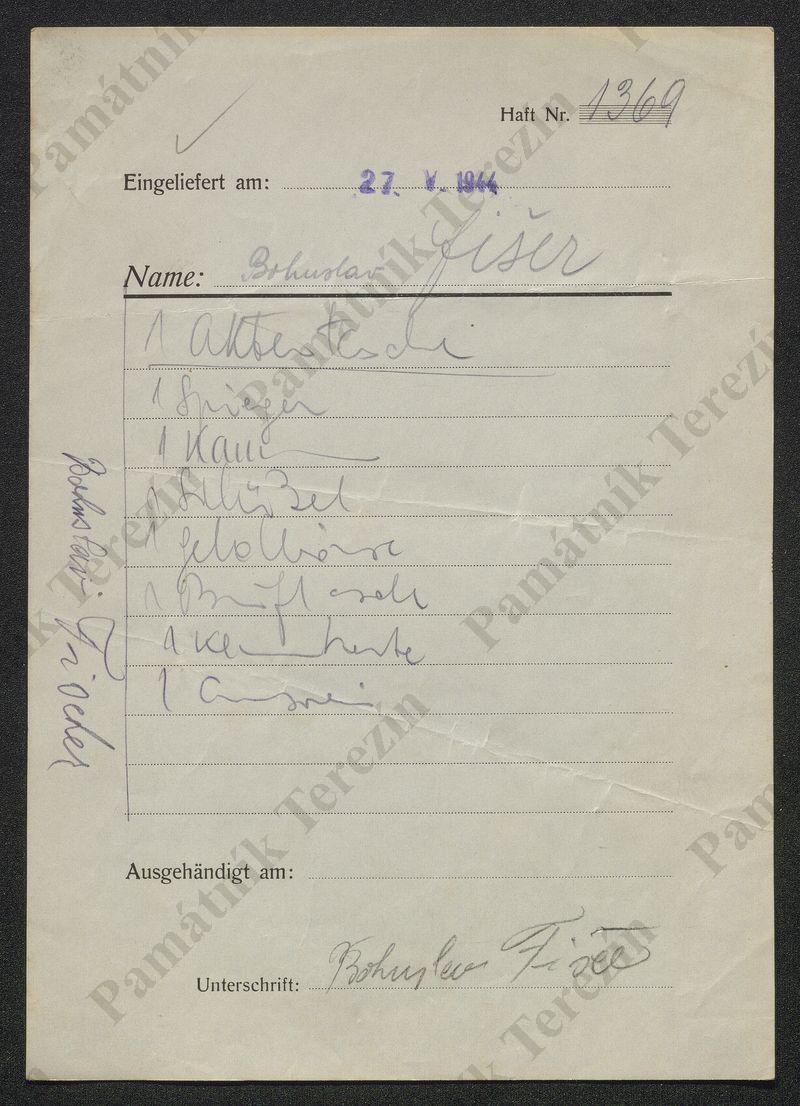 Haft Nr. 1369
Eingeliefert am: 27. V. 1944
Name: Bohuslav Fišer
1 Aktentasche
1 Spiegel
1 Kamm
1 Schlüßel
1 Geldbörse
1 Brieftasche
1
1 Ausweis
Bohuslav Fischer
Ausgehändigt am:
Unterschrift: Bohuslav Fišer
Památník Terezín
Památník Terezín
Památník Terezín
Památník Terezín
Památník Terezín